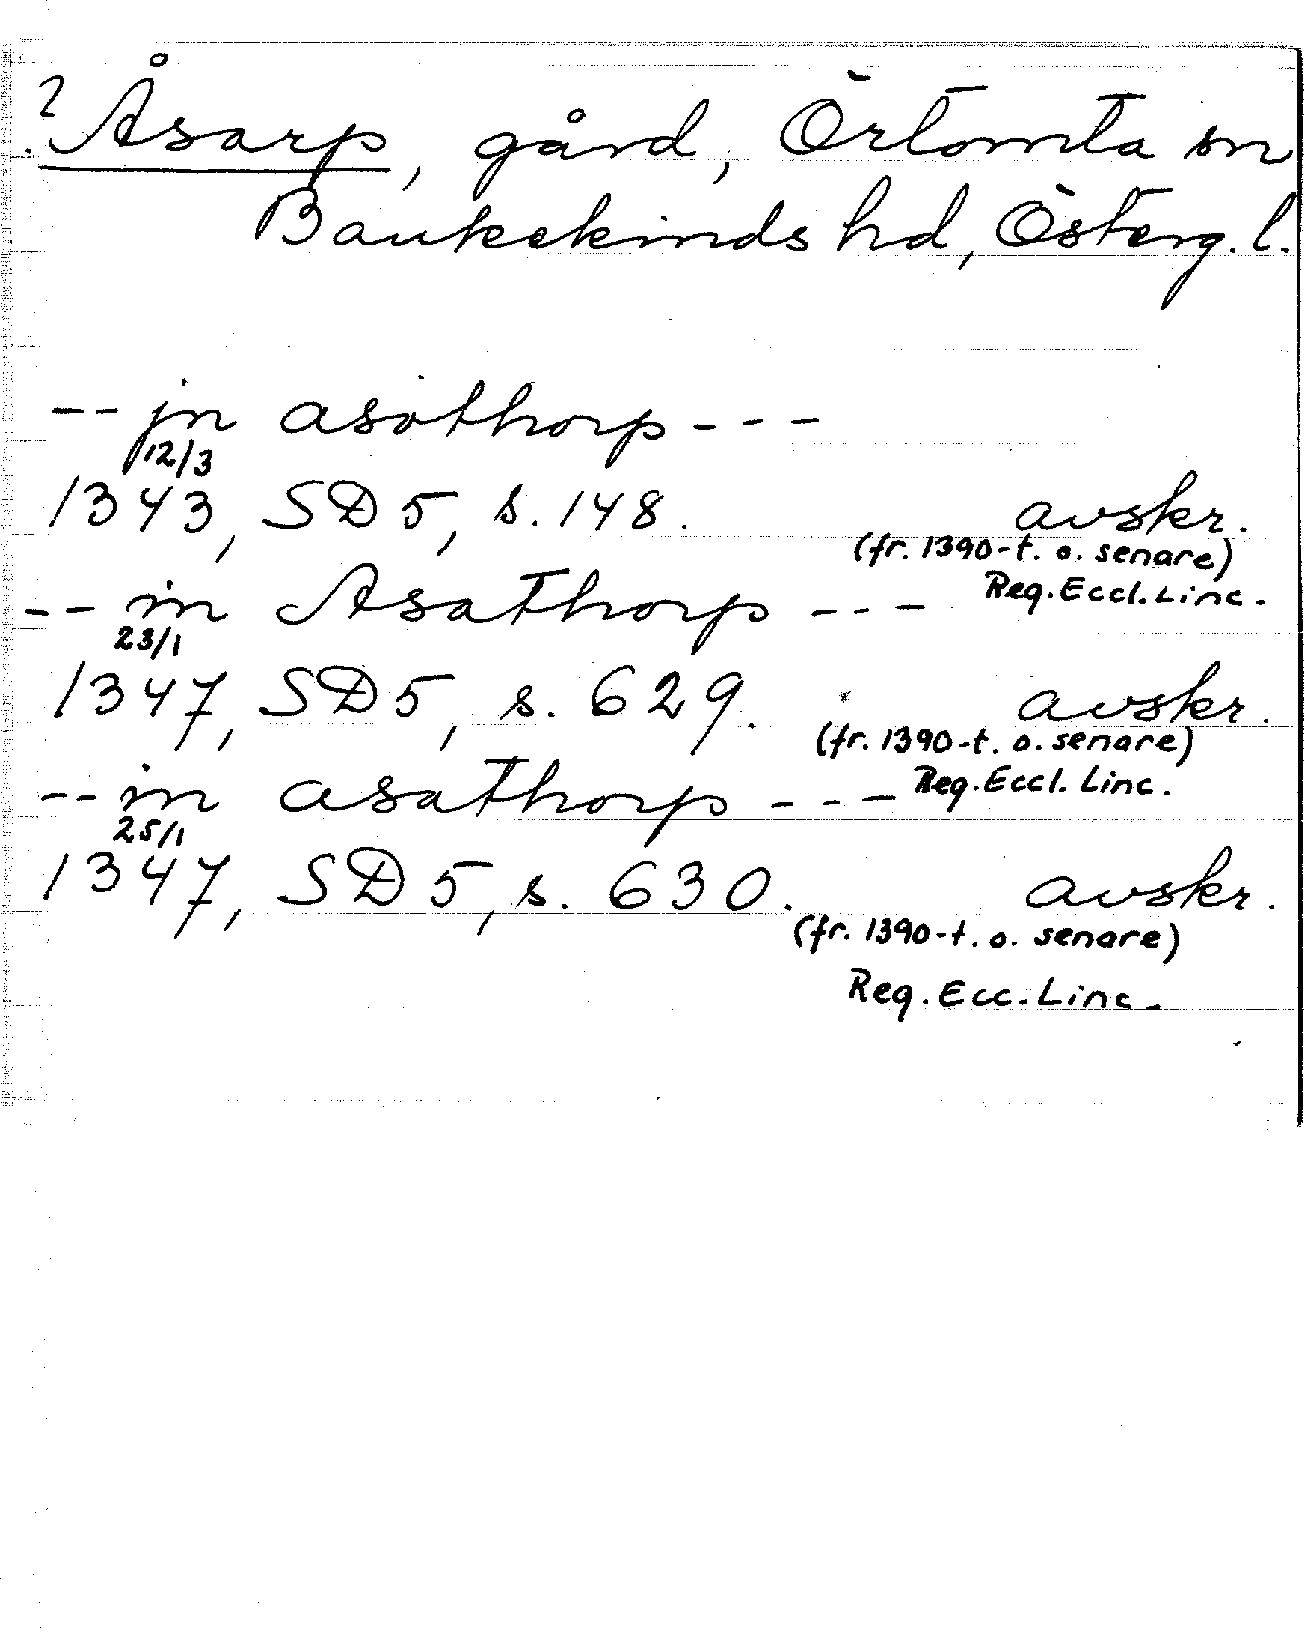 ? Åsarp, gård, Örtomta sn
Bankekinds hd, Österg. l.
-- jn asøthorp ---
12/3
1343, SD 5, s. 148. avskr.
(fr. 1390-t. o. senare)
Reg. Eccl. Linc.
-- in Asathorp ---
23/1
1347, SD 5, s. 629. avskr.
(fr. 1390-t. o. senare)
Reg. Eccl. Linc.
-- in asathorp ---
25/1
1347, SD 5, s. 630. avskr.
(fr. 1390-t. o. senare)
Reg. Ecc. Linc.